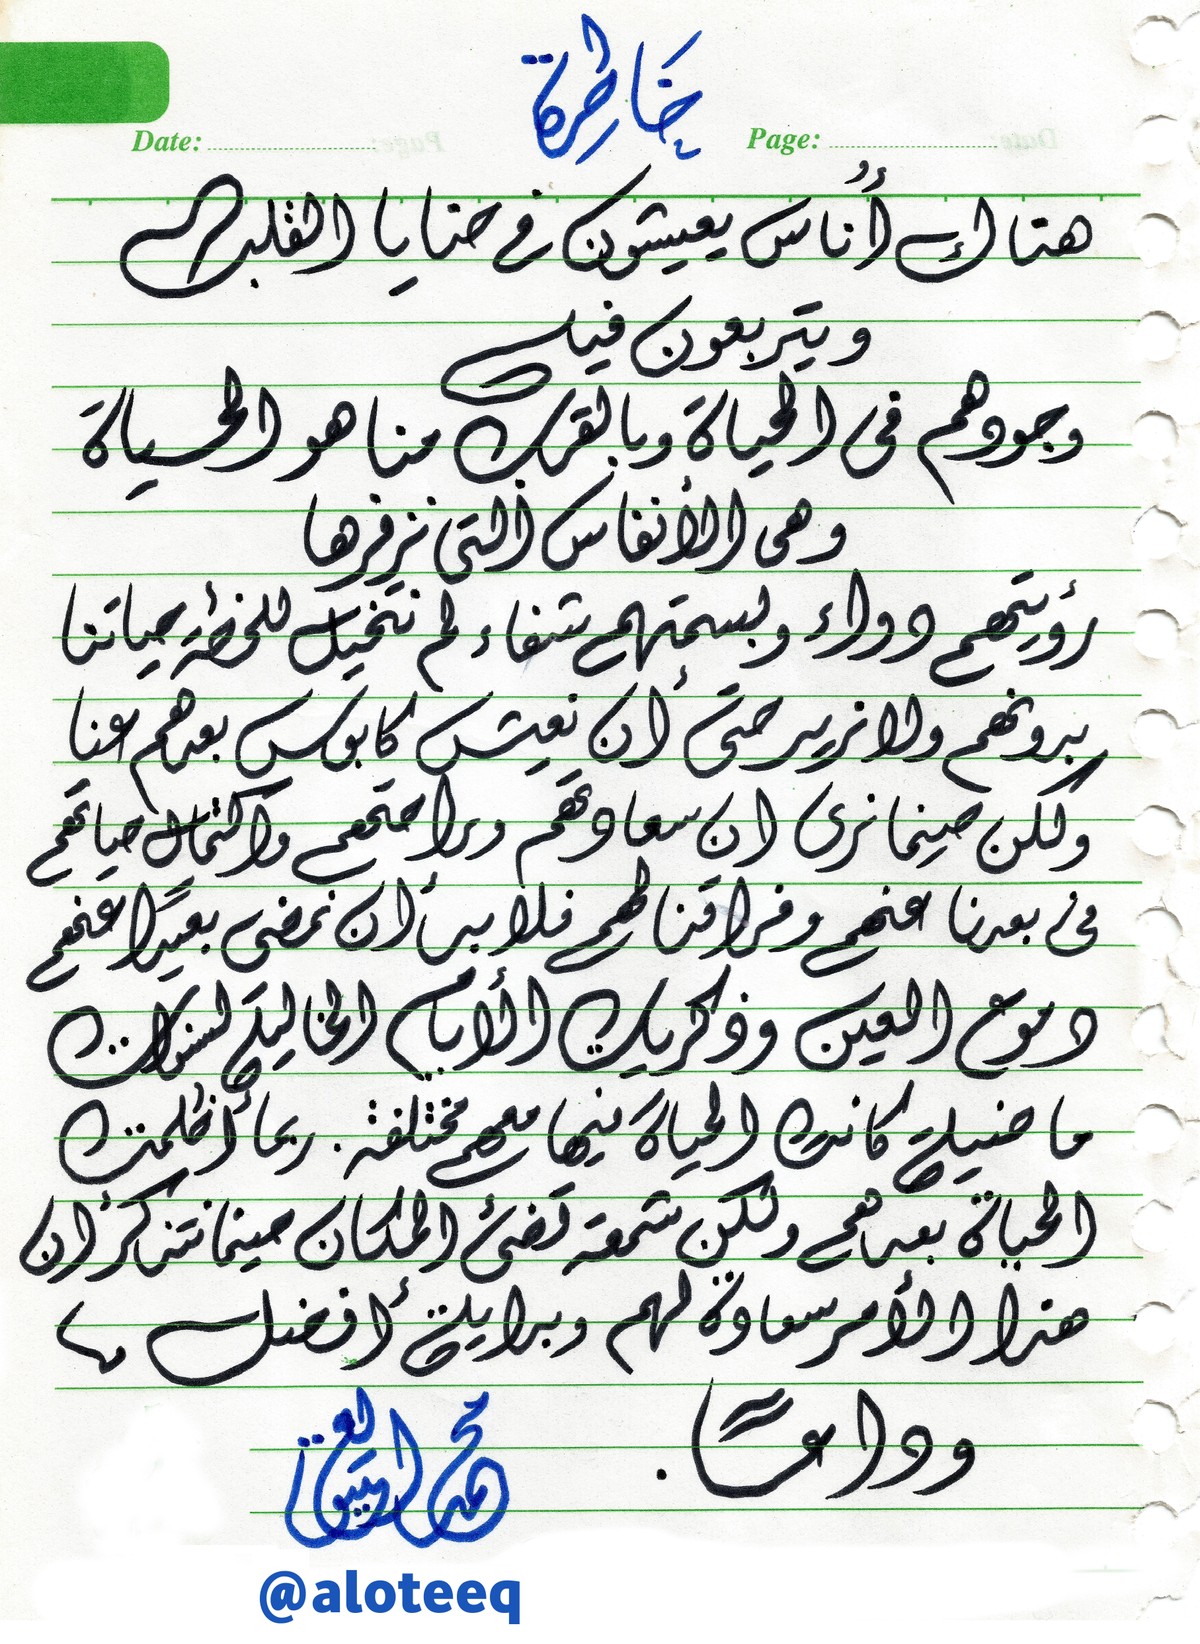 خَاطِرة
Date: Page:
هناك أُناس يعيشون في حنايا القلب
ويتربعون فيه
وجودهم في الحياة وبالقرب منا هو الحياة
وهي الأنفاس التي نزفرها
رؤيتهم دواء وبسمتهم شفاء لم نتخيل للحظة حياتنا
بدونهم ولا نريد حتى أن نعيش كابوس بعدهم عنا
ولكن حينما نرى ان سعادتهم وراحتهم واكتمال حياتهم
في بعدنا عنهم وفراقنا لهم فلا بد أن نمضي بعيدًا عنهم
دموع العين وذكريات الأيام الخالية لسنوات
ماضية كانت الحياة فيها معهم مختلفة. ربما أظلمت
الحياة بعدهم ولكن شمعة تضئ المكان حينما نتذكر أن
هذا الأمر سعادة لهم وبداية أفضل
وداعًا.
محمد العتيق
@aloteeq